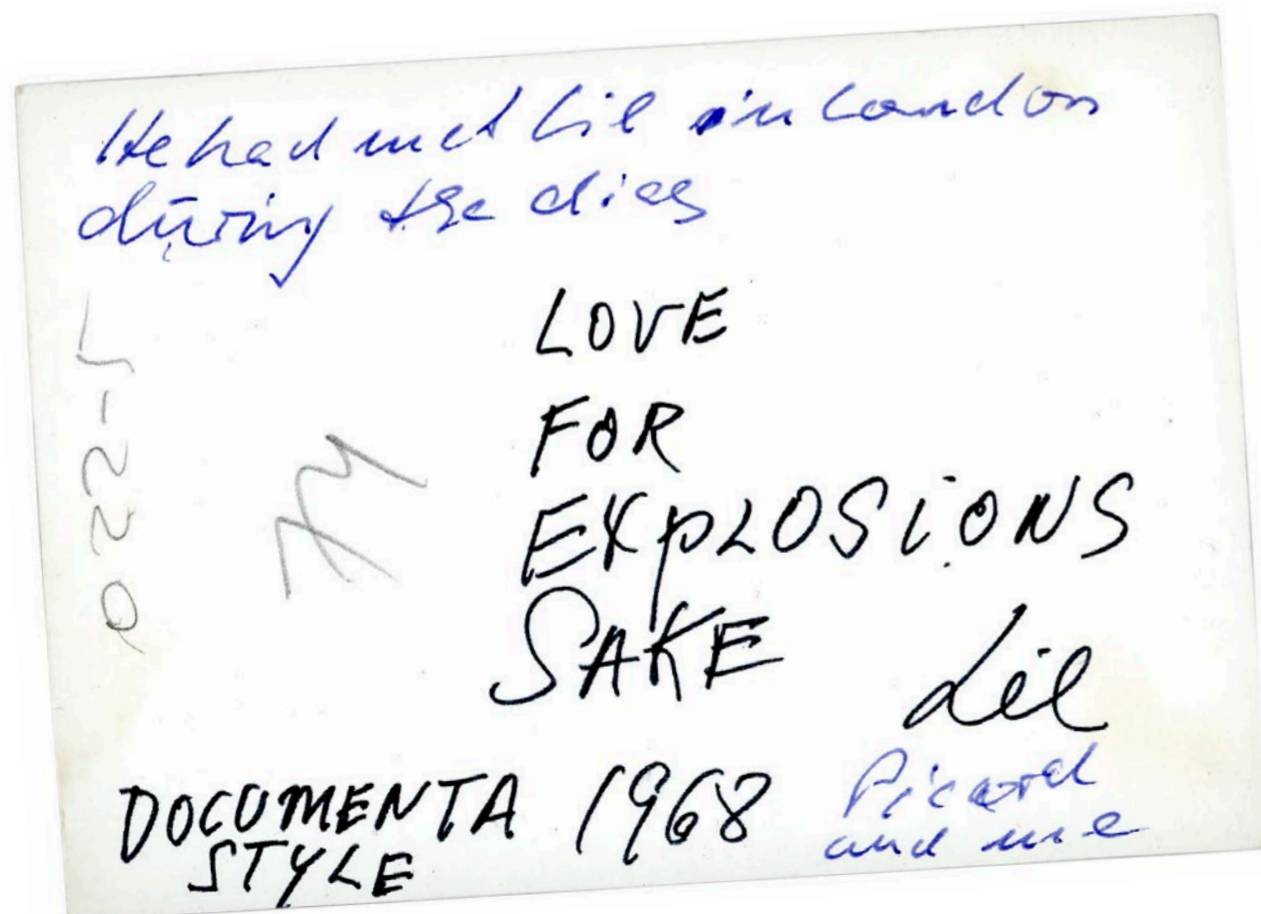 He had met Lil in London
during the dias
LOVE
FOR
EXPLOSIONS
SAKE
Lil
DOCUMENTA 1968
STYLE
Picard
and me